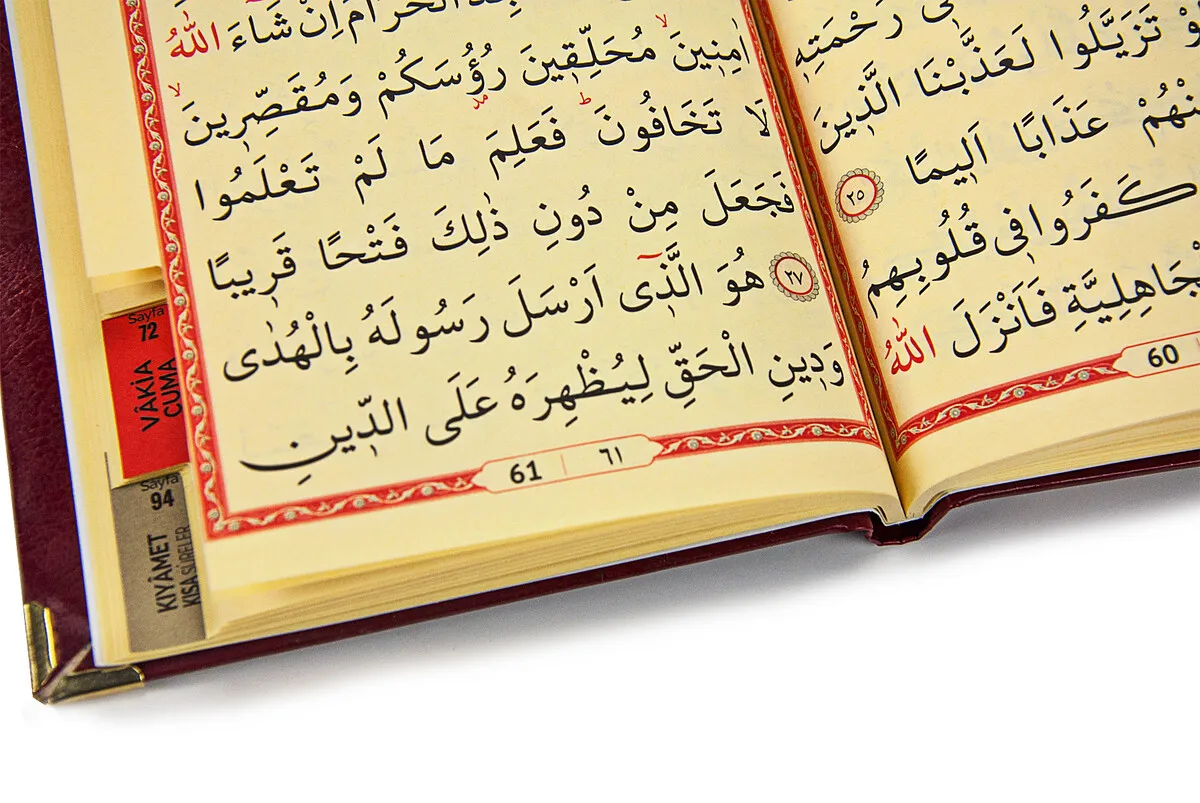 رَحْمَتِهٖ
تَزَيَّلُوا لَعَذَّبْنَا الَّذٖينَ
نْهُمْ عَذَابًا اَلٖيمًا ٢٥
كَفَرُوا فٖى قُلُوبِهِمُ
جَاهِلِيَّةِ فَاَنْزَلَ اللّٰهُ
60
الْحَرَامَ اِنْ شَاءَ اللّٰهُ
اٰمِنٖينَۙ مُحَلِّقٖينَ رُؤُسَكُمْ وَمُقَصِّرٖينَۙ
لَا تَخَافُونَؕ فَعَلِمَ مَا لَمْ تَعْلَمُوا
فَجَعَلَ مِنْ دُونِ ذٰلِكَ فَتْحًا قَرٖيبًا
٢٧ هُوَ الَّذٖٓى اَرْسَلَ رَسُولَهُ بِالْهُدٰى
وَدٖينِ الْحَقِّ لِيُظْهِرَهُ عَلَى الدّٖينِ
61 | ٦١
Sayfa
72
VÂKİA
CUMA
Sayfa
94
KIYÂMET
KISA SÛRELER